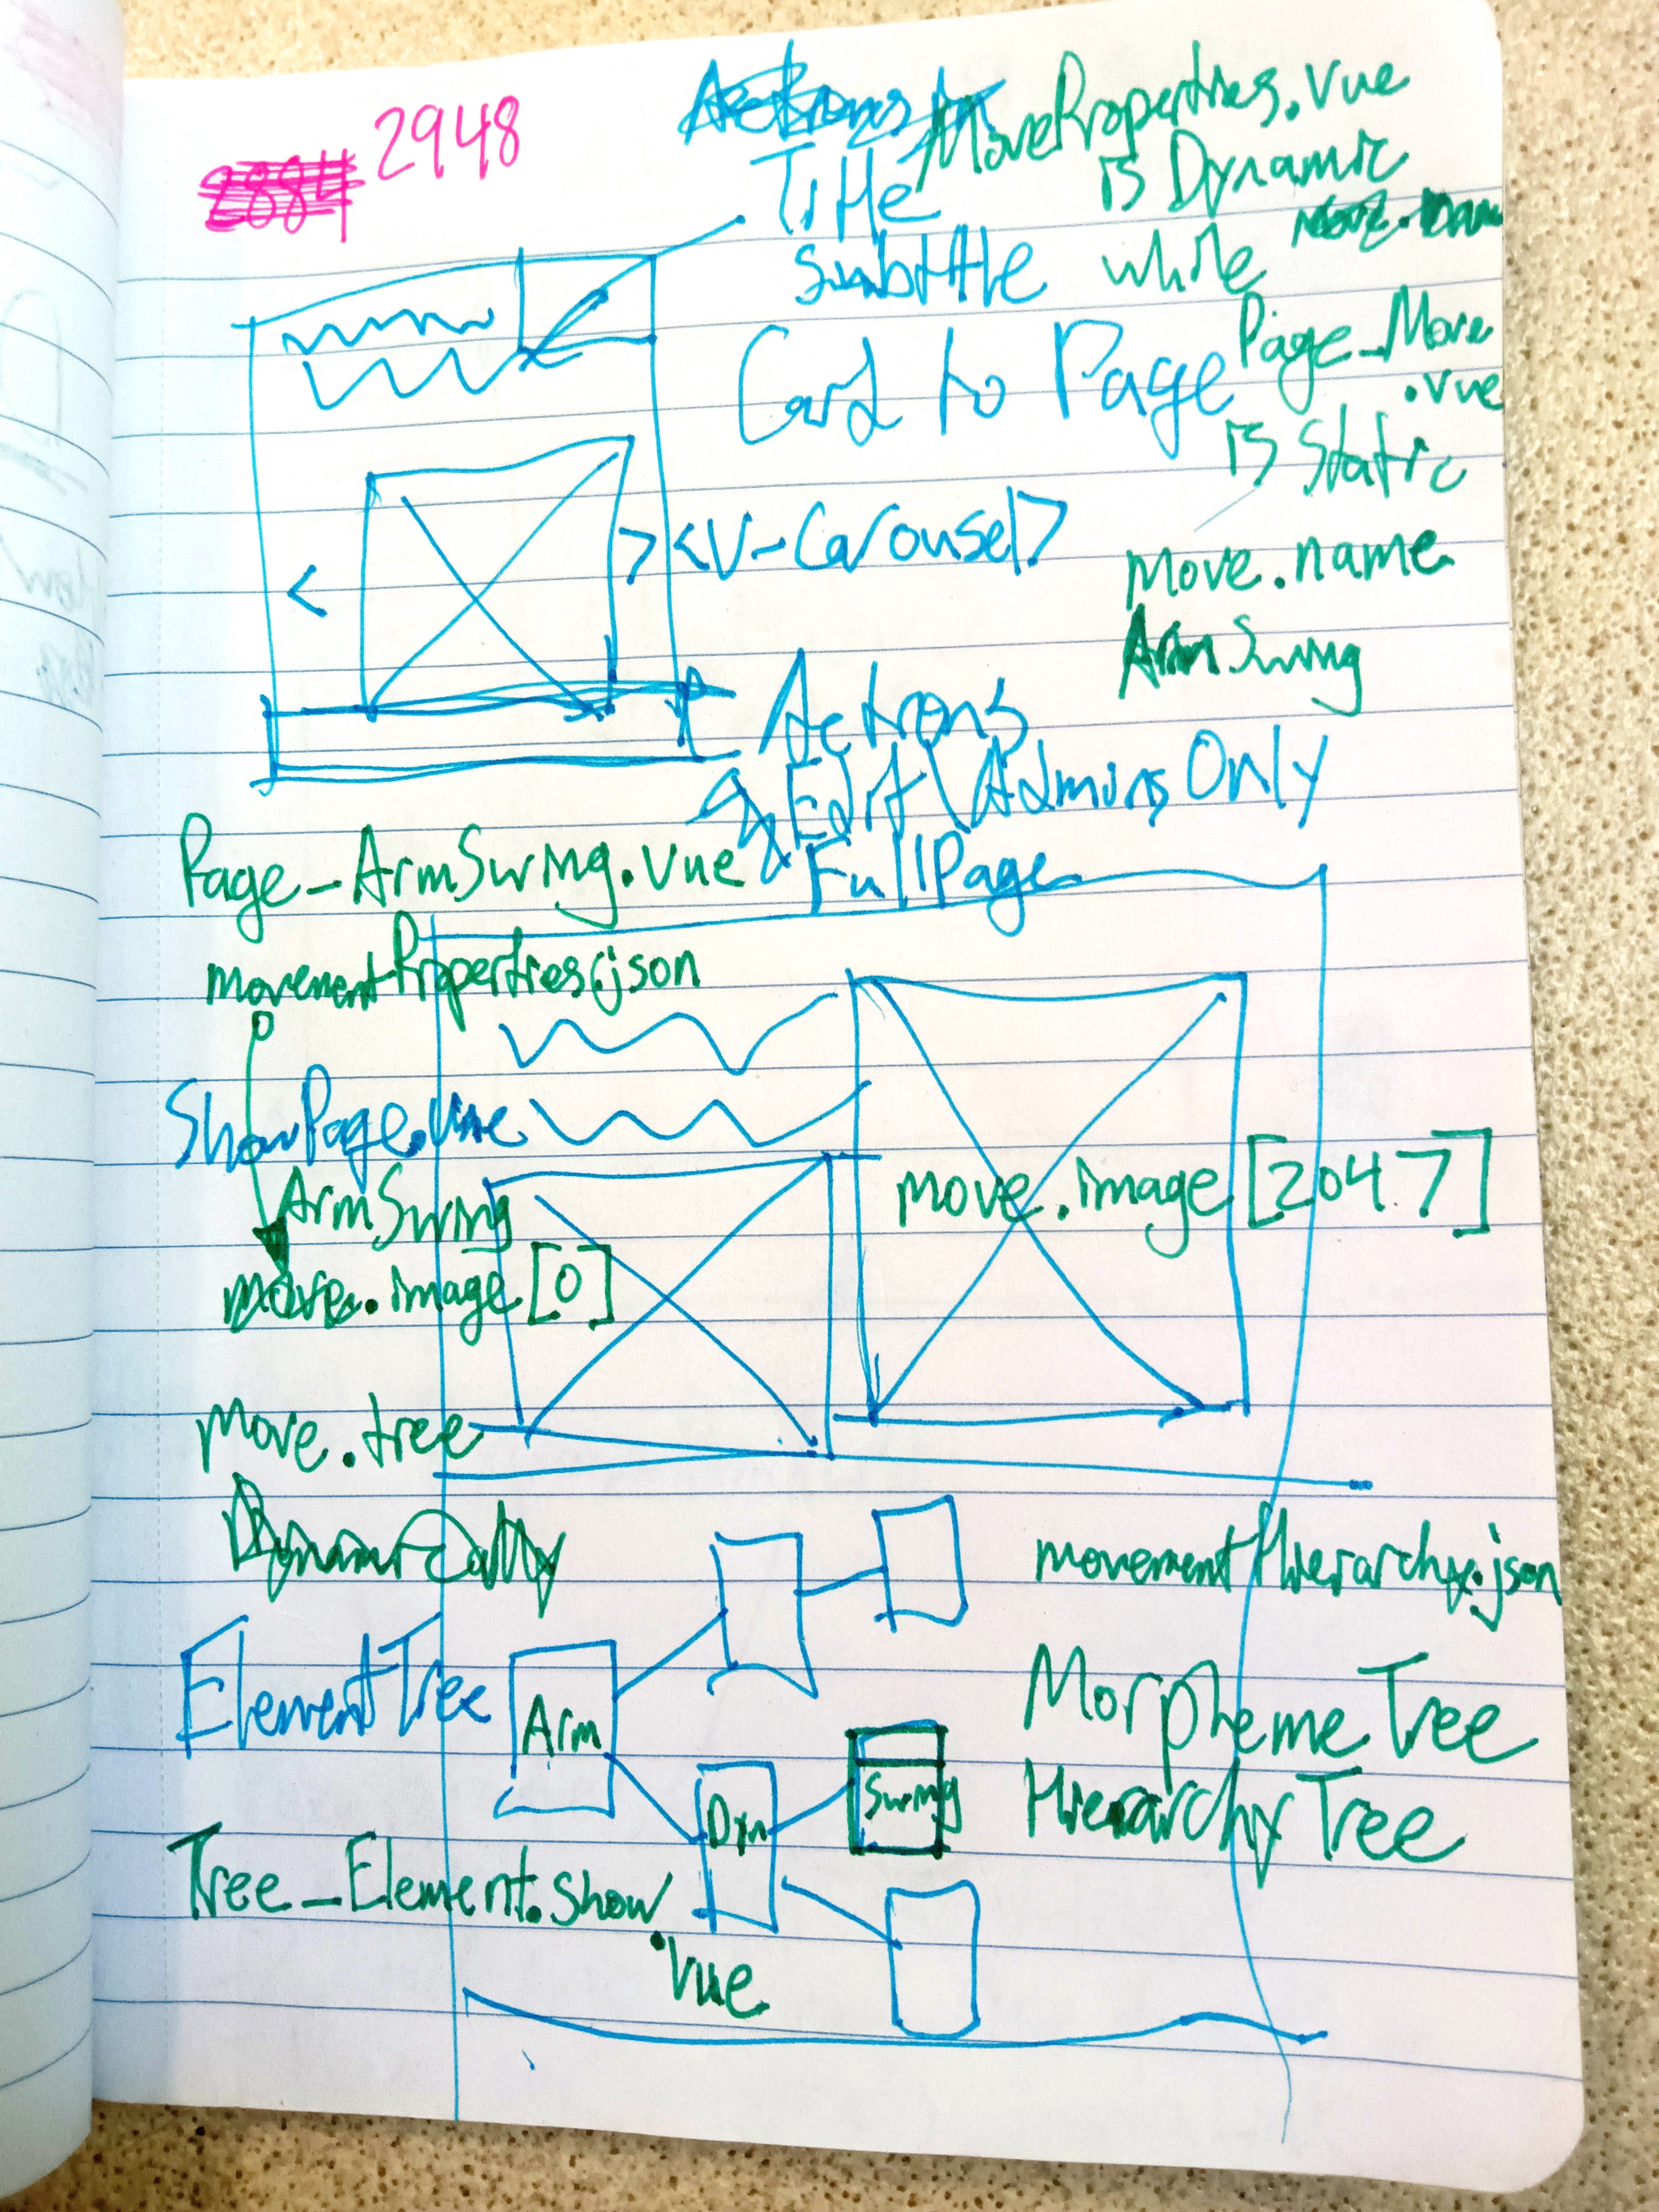 2948
2884
MoveProperties.vue
is Dynamic
while
Title
subtitle
Card to Page
Page_Move
.vue
is Static
<V-Carousel>
move.name
Arm Swing
Actions
Edit \Admins Only
Full Page
Page_ArmSwing.vue
movementProperties.json
ShowPage.vue
ArmSwing
move.image[0]
move.image[2047]
move.tree
Dynamically
movementHierarchy.json
ElementTree
Arm
Dyn
Swing
Morpheme Tree
Hierarchy Tree
Tree_Element.show
.vue